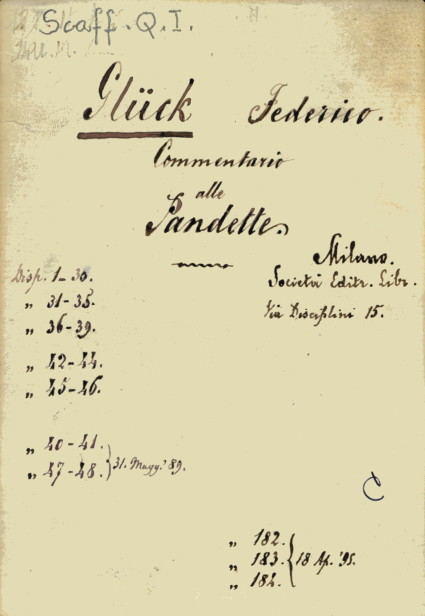 Scaff. Q. I.
Glück Federico.
Commentario
alle
Pandette.
Milano.
Società Editr. Libr.
Via Disciplini 15.
Disp. 1-30.
„ 31-35.
„ 36-39.
„ 42-44.
„ 45-46.
„ 40-41.
„ 47-48. 31. Magg.° 89.
C
„ 182.
„ 183. 18 Ap. '95.
„ 184.